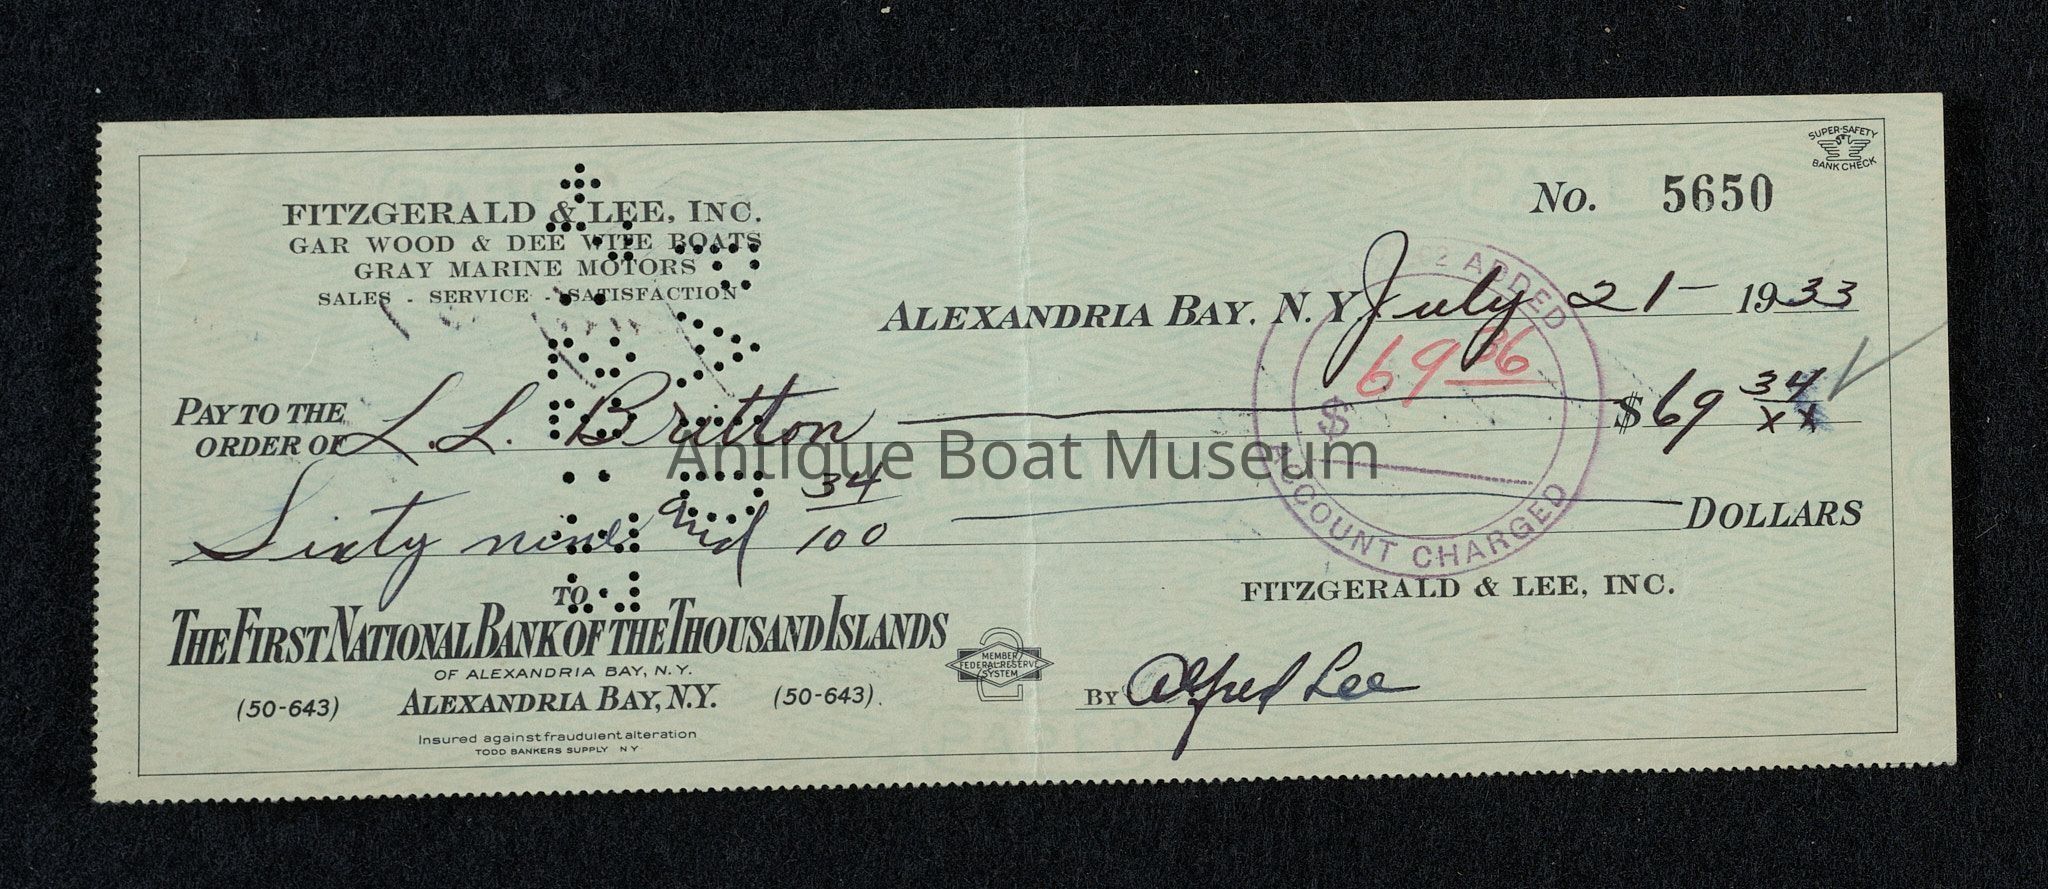 SUPER-SAFETY
BANK CHECK
No. 5650
FITZGERALD & LEE, INC.
GAR WOOD & DEE WITE BOATS
GRAY MARINE MOTORS
SALES - SERVICE - SATISFACTION
ALEXANDRIA BAY, N. Y. July 21 - 1933
02 ADDED
69 36
$
ACCOUNT CHARGED
PAY TO THE
ORDER OF L. L. Britton $69 34/xx
Antique Boat Museum
Sixty nine and 34/100 DOLLARS
TO
THE FIRST NATIONAL BANK OF THE THOUSAND ISLANDS
OF ALEXANDRIA BAY, N.Y.
(50-643) ALEXANDRIA BAY, N.Y. (50-643).
Insured against fraudulent alteration
TODD BANKERS SUPPLY NY
2
MEMBER
FEDERAL RESERVE
SYSTEM
FITZGERALD & LEE, INC.
BY Alfred Lee